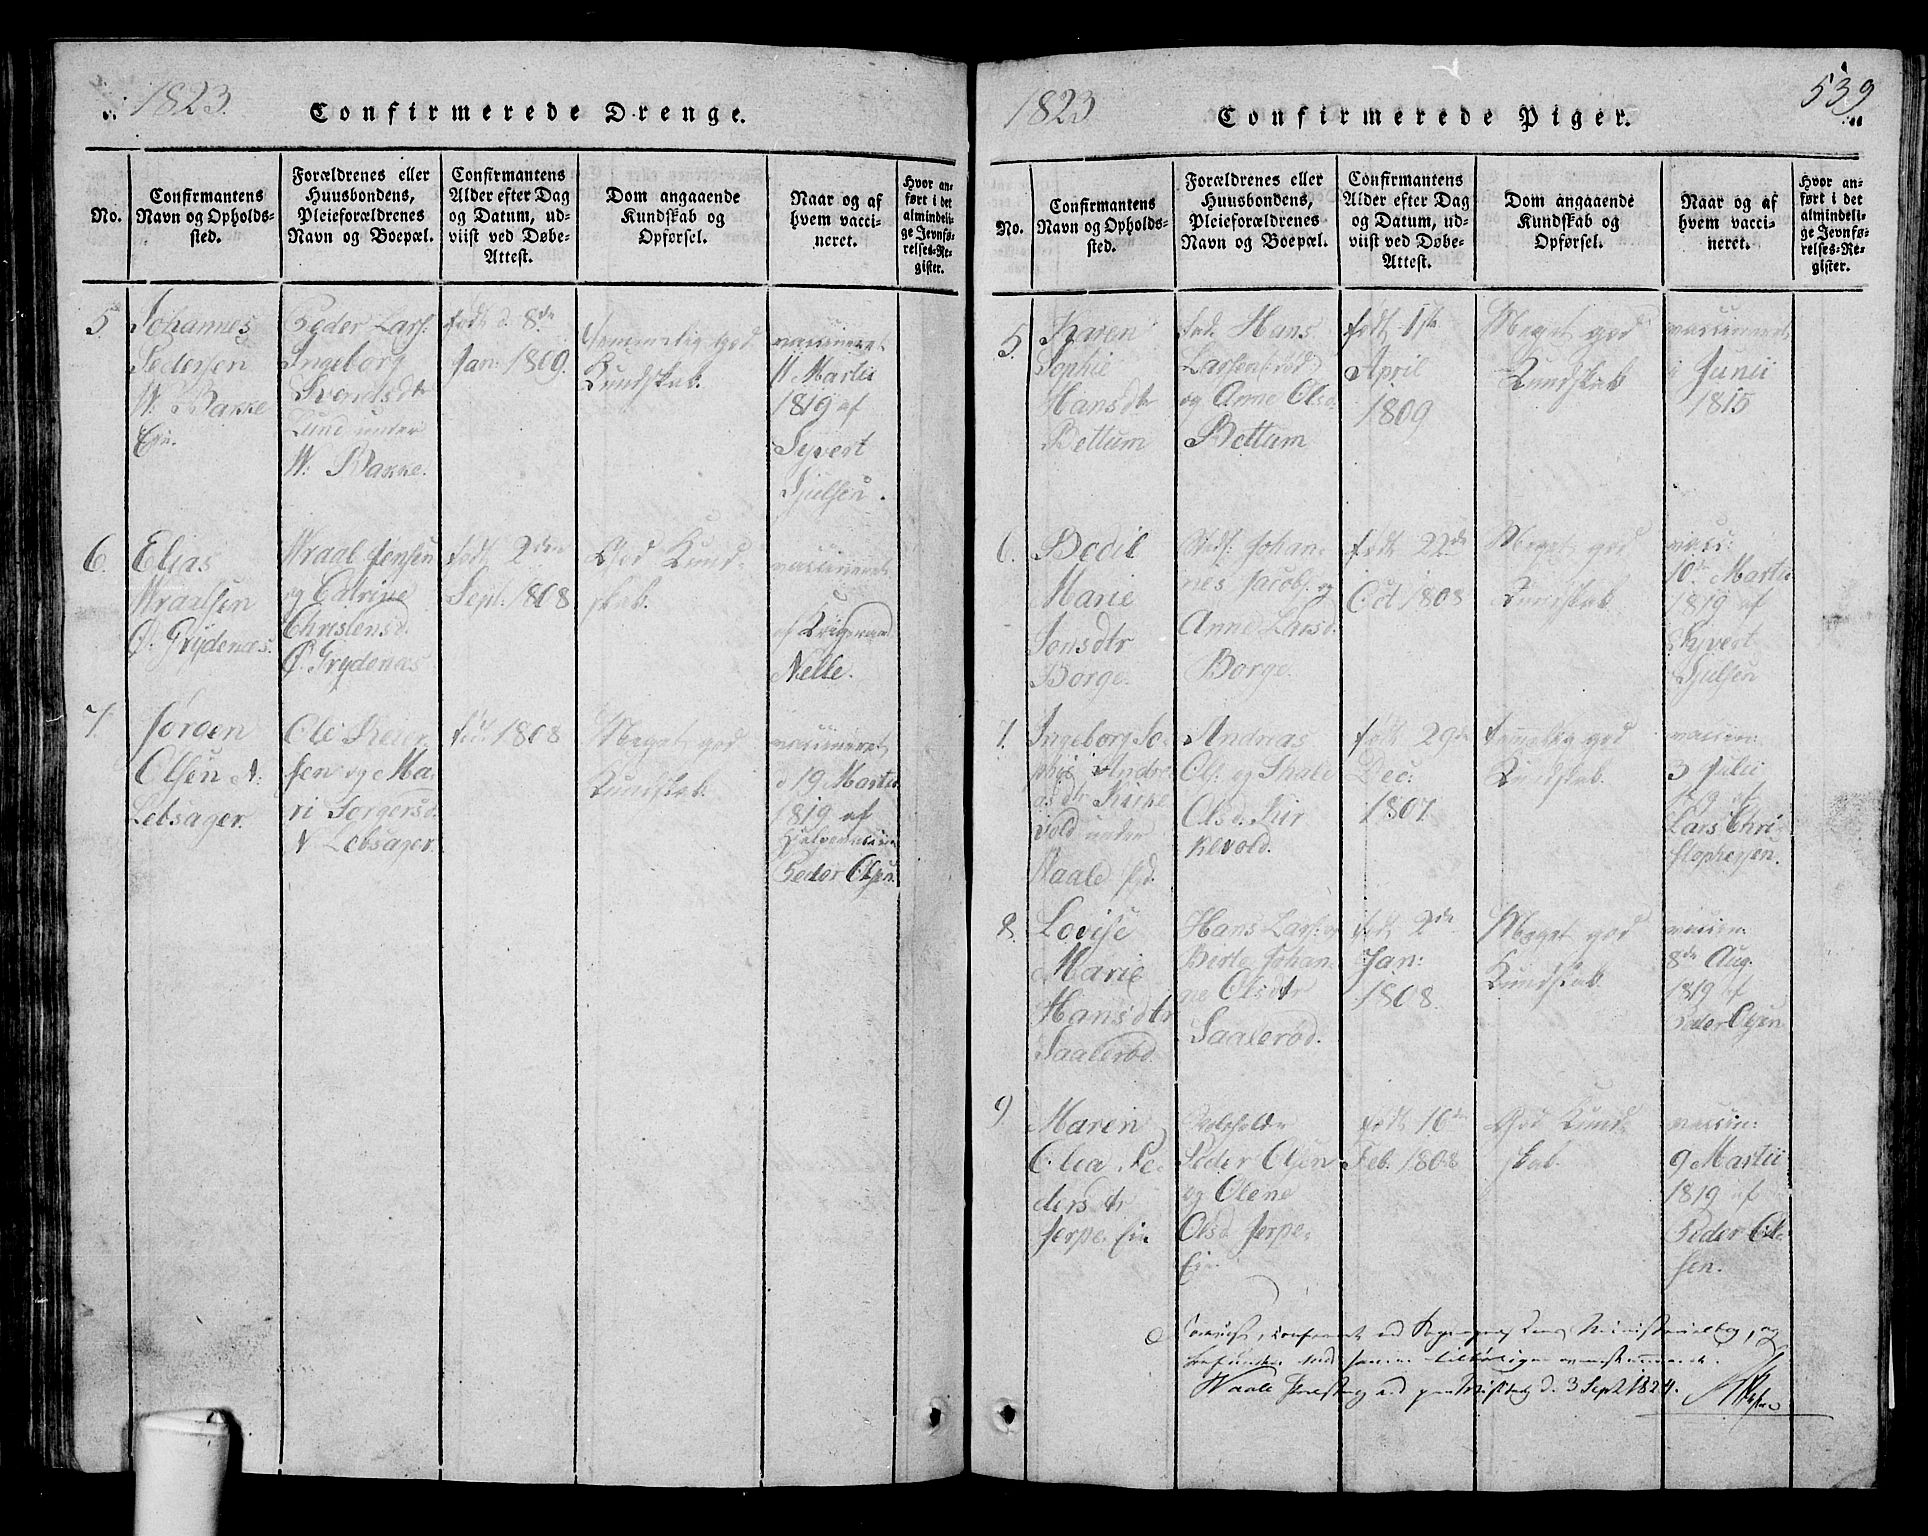 1823.
Confirmerede Drenge.
No.
Confirmantens
Navn og Opholds-
sted.
Forældrenes eller
Huusbondens,
Pleieforældrenes
Navn og Boepæl.
Confirmantens
Alder efter Dag
og Datum, ud-
viist ved Døbe-
Attest.
Dom angaaende
Kundskab og
Opførsel.
Naar og af
hvem vacci-
neret.
Hvor an-
ført i det
almindeli-
ge Jevnfø-
relses-Re-
gister.
5
Johannes
Pedersen
W. Bakke
Eje.
Peder Lars.
Ingeborg
Svendsdtr
Lund under
W. Bakke.
født d. 8de
Jan: 1809.
Temmelig god
Kundskab.
vaccineret
11 Martii
1819 af
Syvert
Sjulsen.
6.
Elias
Wraalsen
Ø. Grydenæs.
Wraal Jensen
og Catrine
Christensd.
Ø. Grydenæs
født 2den
Sept. 1808
God Kund-
skab.
vaccineret
af
Nelle.
7.
Jørgen
Olsen N.
Lebsager.
Ole Reier
sen og Ma-
ri Torgersd.
N Lebsager.
fød. 1808
Meget god
Kundskab.
vaccineret
d 19 Martii
1819 af
Peder Olsen.
1823
Confirmerede Piger.
539
No.
Confirmantens
Navn og Opholds-
sted.
Forældrenes eller
Huusbondens,
Pleieforældrenes
Navn og Boepæl.
Confirmantens
Alder efter Dag
og Datum, ud-
viist ved Døbe-
Attest.
Dom angaaende
Kundskab og
Opførsel.
Naar og af
hvem vacci-
neret.
Hvor an-
ført i det
almindeli-
ge Jevnfø-
relses-Re-
gister.
5.
Karen
Sophie
Hansdtr
Bettum
Hans
Larsen
og Anne Olsd.
Bettum
født 1ste
April
1809
Meget god
Kundskab
vaccineret
i Junii
1815
6.
Bodil
Marie
Jonsdtr
Borge.
Johan-
nes Jacobs. og
Anne Larsd.
Borge.
født 22de
Oct 1808
Meget god
Kundskab.
vacci:
10de Martii
1819 af
Syvert
Sjulsen
7.
Ingeborg So-
phie Andre
asdtr Kirke
vold under
Waale Pgd.
Andreas
Ols. og Thale
Olsd. Kir
kevold.
født 29de
Dec:
1807
Temmelig god
Kundskab.
vaccin:
3 Julii
1819 af
Lars Chri
stophersen.
8.
Lovise
Marie
Hansdtr
Saalerød.
Hans Lars. og
Birte Johan-
ne Olsdtr
Saalerød.
født 2de
Jan:
1808.
Meget god
Kundskab.
vaccin:
8de Aug.
1819 af
Peder Olsen
9
Maren
Olea Pe-
dersdtr
Jerpe. Eie
Peder Olsen
og Olene
Olsd Jerpe.
Eje.
født 16de
Feb. 1808
God Kund-
skab.
vaccin:
9 Martii
1819 af
Peder Ol-
sen.
Ministerialbog, og
befunden med samme tilbørligen overensstemmende.
Waale Præstegaard d. 3 Sept 1824.